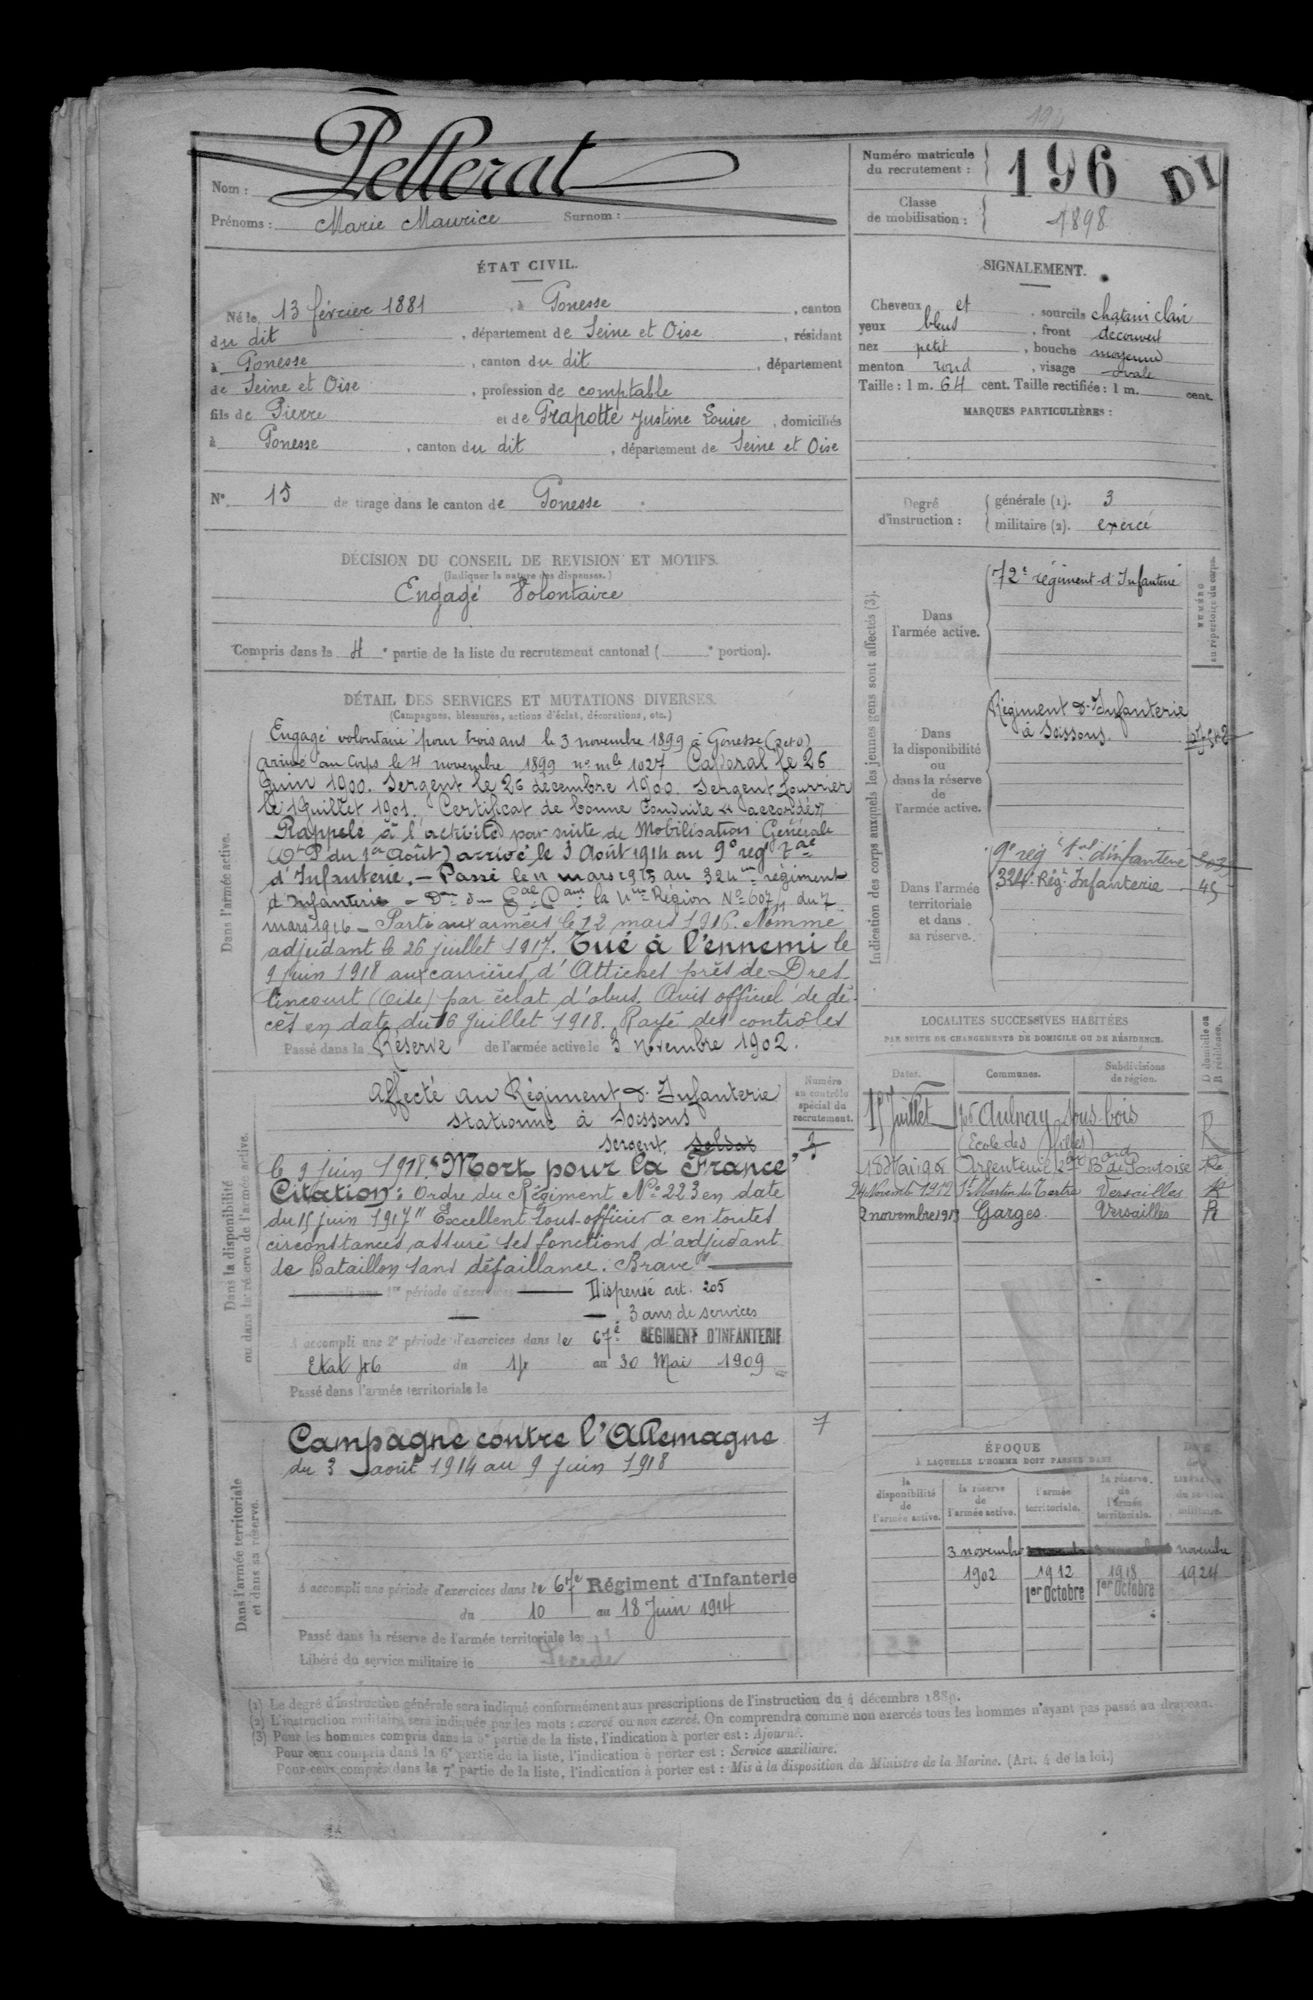 Nom : Pellerat
Prénoms : Marie Maurice Surnom :
Numéro matricule du recrutement : 196 DI
Classe de mobilisation : 1898
ÉTAT CIVIL.
Né le 13 février 1881, à Gonesse, canton
du dit, département de Seine et Oise, résidant
à Gonesse, canton du dit, département
de Seine et Oise, profession de comptable
fils de Pierre et de Grapotte Justine Louise, domiciliés
à Gonesse, canton du dit, département de Seine et Oise
N° 15 de tirage dans le canton de Gonesse.
SIGNALEMENT.
Cheveux et sourcils chatain clair
yeux bleus, front decouvert
nez petit, bouche moyenne
menton rond, visage ovale
Taille : 1 m. 64 cent. Taille rectifiée : 1 m. cent.
MARQUES PARTICULIÈRES :
Degré d'instruction : générale (1). 3
militaire (2). exercé
DÉCISION DU CONSEIL DE REVISION ET MOTIFS.
(Indiquer la nature des dispenses.)
Engagé Volontaire
Compris dans la 4e partie de la liste du recrutement cantonal ( e portion).
DÉTAIL DES SERVICES ET MUTATIONS DIVERSES.
(Campagnes, blessures, actions d'éclat, décorations, etc.)
Dans l'armée active.
Engagé volontaire pour trois ans le 3 novembre 1899 à Gonesse (S et O)
arrivé au Corps le 4 novembre 1899 no mle 1027 Caporal le 26
Juin 1900. Sergent le 26 décembre 1900. Sergent fourrier
le 1 Juillet 1901. Certificat de bonne Conduite "accordé"
Rappelé à l'activité par suite de Mobilisation Générale
du 1er Août) arrivé le 3 Août 1914 au 9e regt
d'Infanterie. - Passé le 11 mars 1915 au 324me régiment
d'Infanterie la Région No 607 du 7
mars 1916 - Parti aux armées le 12 mars 1916. Nommé
adjudant le 26 juillet 1917. Tué à l'ennemi le
9 juin 1918 aux carrières d'Attichet près de Dres-
lincourt (Oise) par éclat d'obus. Avis officiel de dé-
cès en date du 16 Juillet 1918. Rayé des contrôles
Passé dans la Réserve de l'armée active le 3 novembre 1902.
Dans la disponibilité ou dans la réserve de l'armée active.
Numéro au contrôle spécial du recrutement.
Affecté au Régiment d'Infanterie
stationné à Soissons
sergent soldat
le 9 juin 1918. "Mort pour la France"
Citation : Ordre du Régiment No 223 en date
du 15 juin 1917 "Excellent sous-officier a en toutes
circonstances assuré ses fonctions d'adjudant
de Bataillon sans défaillance. Brave"
A accompli une 1re période d'exercices Dispensé art. 205
3 ans de services
A accompli une 2e période d'exercices dans le 67e RÉGIMENT D'INFANTERIE
du 14 au 30 Mai 1909
Passé dans l'armée territoriale le
Dans l'armée territoriale et dans sa réserve.
Campagne contre l'Allemagne
7
du 3 août 1914 au 9 juin 1918
A accompli une période d'exercices dans le 67e Régiment d'Infanterie
du 10 au 18 Juin 1914
Passé dans la réserve de l'armée territoriale le
Libéré du service militaire le Décédé
Indication des corps auxquels les jeunes gens sont affectés (3).
NUMÉRO au répertoire du corps.
Dans l'armée active.
72e régiment d'Infanterie
Dans la disponibilité ou dans la réserve de l'armée active.
Régiment d'Infanterie
à Soissons.
Dans l'armée territoriale et dans sa réserve.
9e reg t tal d'infanterie
324e Régt Infanterie 45
LOCALITÉS SUCCESSIVES HABITÉES
PAR SUITE DE CHANGEMENTS DE DOMICILE OU DE RÉSIDENCE.
Dates. Communes. Subdivisions de région. D domicile ou R résidence.
15 Juillet Aulnay-sous-bois R
(Ecole des filles)
18 Mai 1908 Argenteuil 2 Bard de Pontoise Re
24 Novemb 1912 St Martin du Tertre Versailles R
2 novembre 1913 Garges Versailles R
ÉPOQUE
À LAQUELLE L'HOMME DOIT PASSER DANS
DATE de la LIBÉRATION du service militaire.
la disponibilité de l'armée active. la réserve de l'armée active. l'armée territoriale. la réserve de l'armée territoriale.
3 novembre novembre
1902 1912 1918 1924
1er Octobre 1er Octobre
(1) Le degré d'instruction générale sera indiqué conformément aux prescriptions de l'instruction du 4 décembre 1889.
(2) L'instruction militaire sera indiquée par les mots : exercé ou non exercé. On comprendra comme non exercés tous les hommes n'ayant pas passé au drapeau.
(3) Pour les hommes compris dans la 5e partie de la liste, l'indication à porter est : Ajourné.
Pour ceux compris dans la 6e partie de la liste, l'indication à porter est : Service auxiliaire.
Pour ceux compris dans la 7e partie de la liste, l'indication à porter est : Mis à la disposition du Ministre de la Marine. (Art. 4 de la loi.)